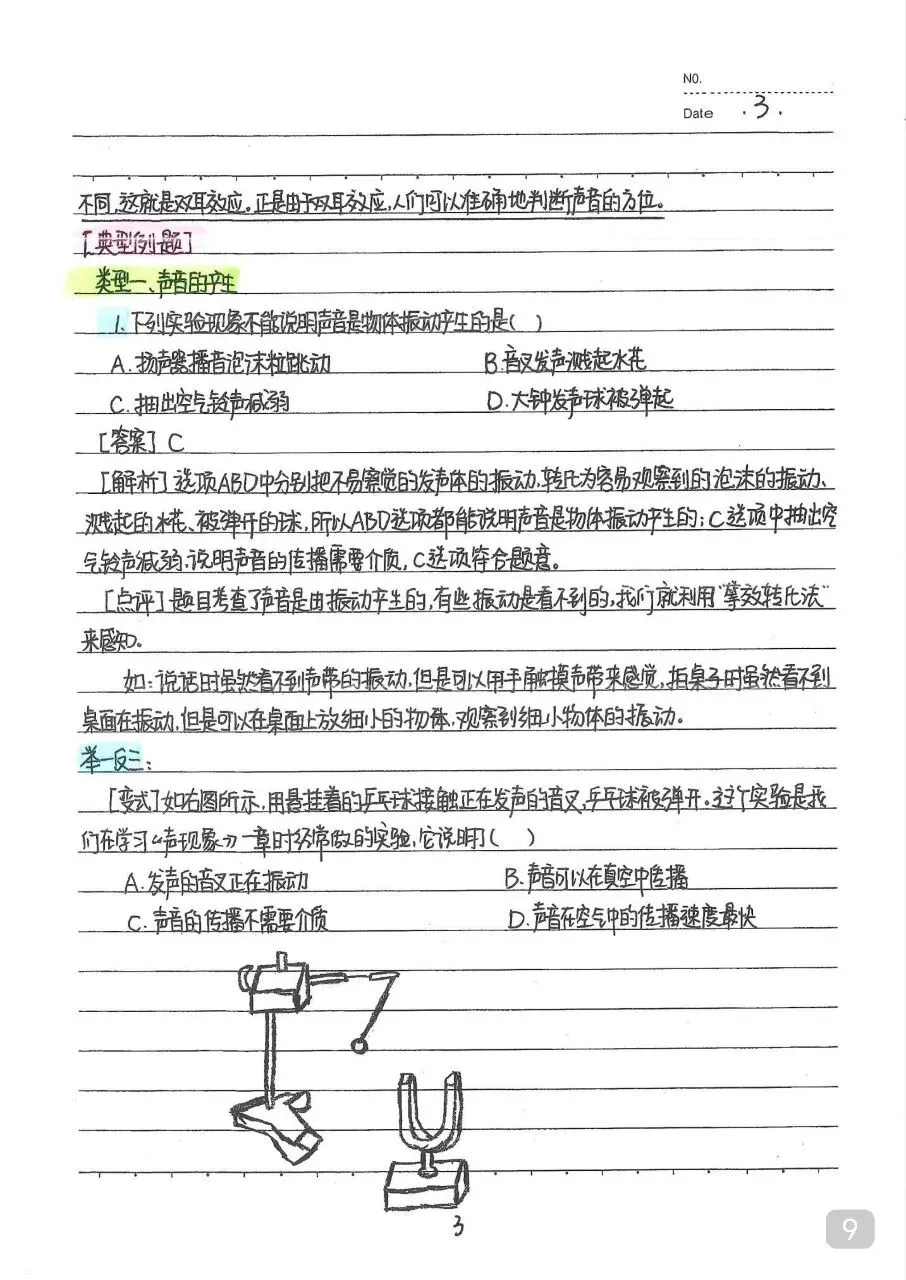 NO.
Date .3.
不同,这就是双耳效应。正是由于双耳效应,人们可以准确地判断声音的方位。
[典型例题]
类型一、声音的产生
1.下列实验现象不能说明声音是物体振动产生的是( )
A.扬声器播音泡沫粒跳动 B.音叉发声溅起水花
C.抽出空气铃声减弱 D.大钟发声球被弹起
[答案]C
[解析]选项ABD中分别把不易察觉的发声体的振动,转化为容易观察到的泡沫的振动、
溅起的水花、被弹开的球,所以ABD选项都能说明声音是物体振动产生的;C选项中抽出空
气铃声减弱,说明声音的传播需要介质,C选项符合题意。
[点评]题目考查了声音是由振动产生的,有些振动是看不到的,我们就利用“等效转化法”
来感知。
如:说话时虽然看不到声带的振动,但是可以用手触摸声带来感觉,拍桌子时虽然看不到
桌面在振动,但是可以在桌面上放细小的物体,观察到细小物体的振动。
举一反三:
[变式]如右图所示,用悬挂着的乒乓球接触正在发声的音叉,乒乓球被弹开。这个实验是我
们在学习《声现象》一章时经常做的实验,它说明了( )
A.发声的音叉正在振动 B.声音可以在真空中传播
C.声音的传播不需要介质 D.声音在空气中的传播速度最快
3
9